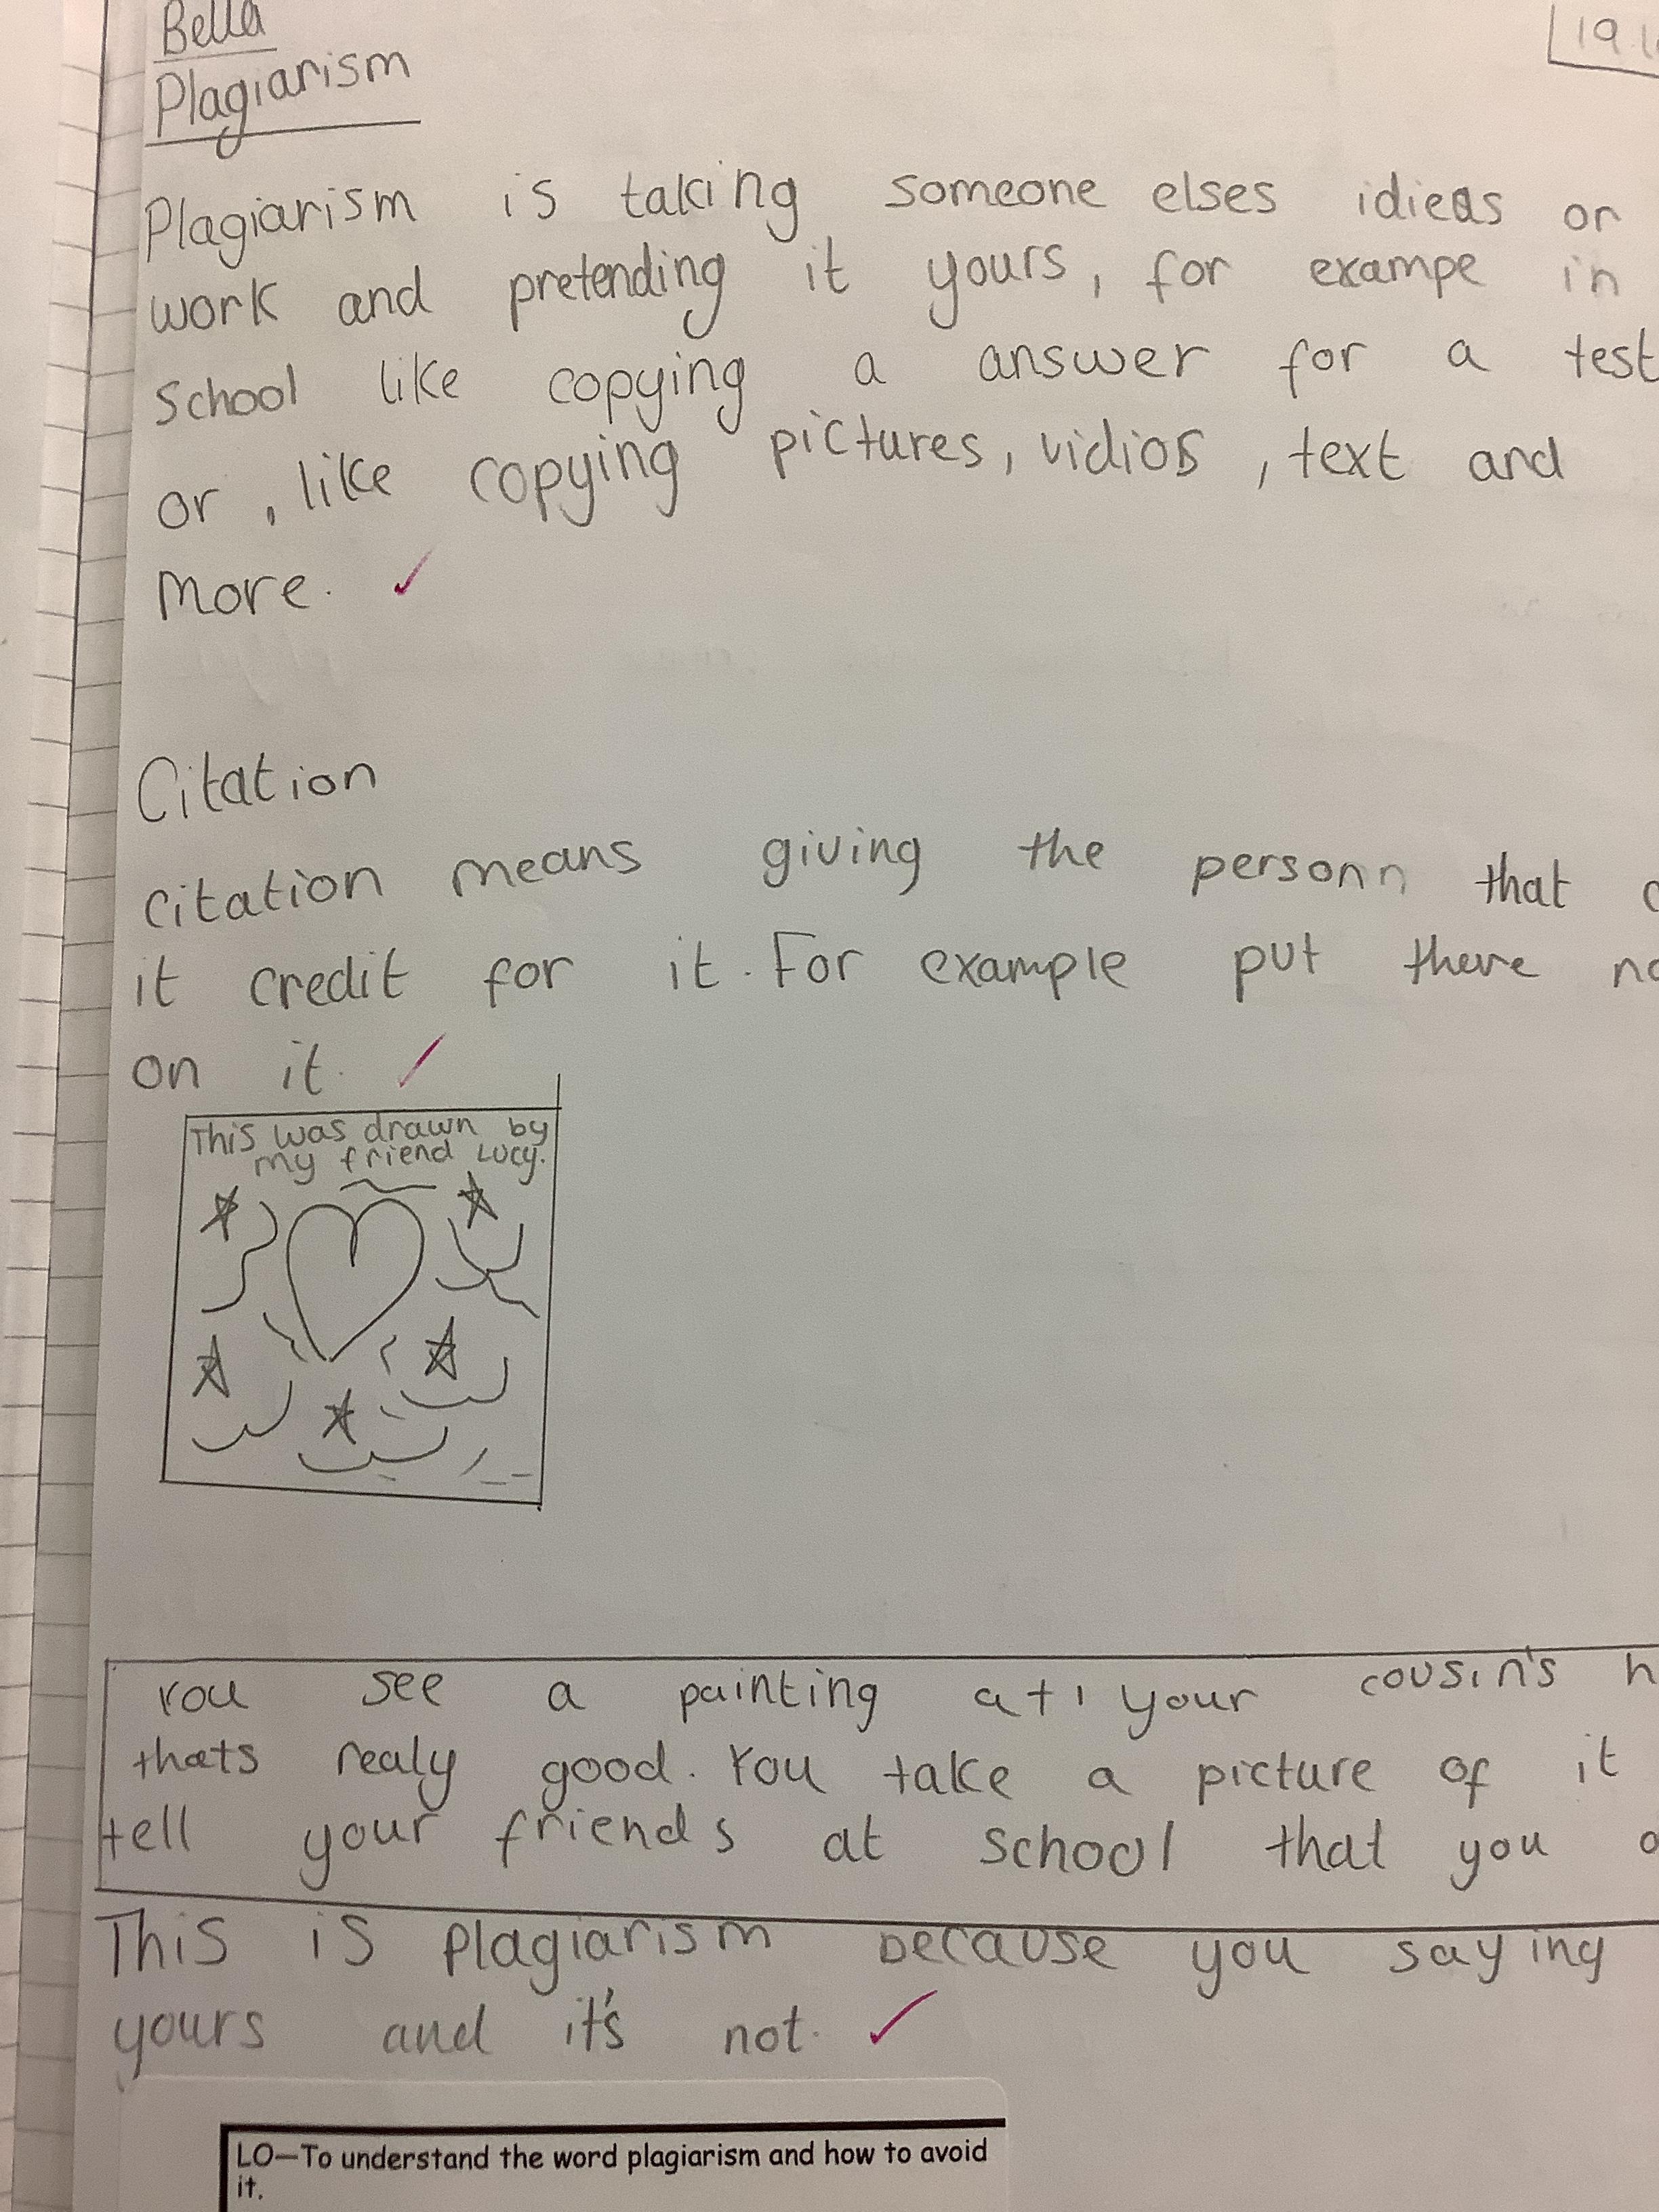 Bella
Plagiarism
Plagiarism is taking someone elses idieas or
work and pretending it yours, for exampe in
school like copying a answer for a test
or , like copying pictures, vidios , text and
more.
Citation
citation means giving the personn that
it credit for it. For example put there
on it.
This was drawn by
my friend Lucy.
You see a painting at your cousin's
thats realy good. You take a picture of it
tell your friends at school that you
This is plagiarism because you saying
yours and it's not.
LO—To understand the word plagiarism and how to avoid
it.